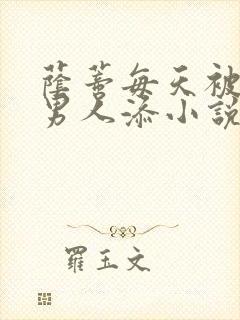 蔭蒂每天被
男人添小說
羅玉文